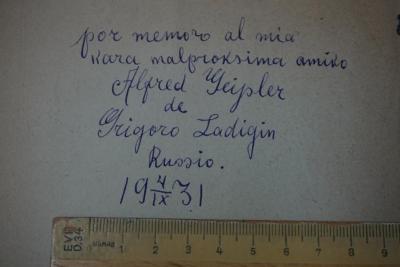 por memoro al mia
kara malproksima amiko
Alfred Geipler
de
Grigoro Ladigin
Russio.
19 4/IX 31
0 1 2 3 4 5 6 7 8 9